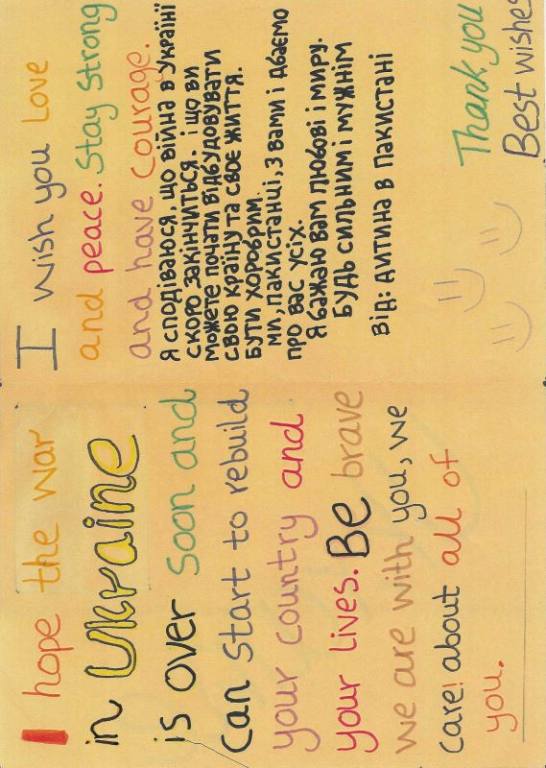 I hope the war
in Ukraine
is over soon and
Can start to rebuild
your country and
your lives. Be brave
we are with you, we
care! about all of
you.
I wish you Love
and peace. Stay strong
and have Courage.
Я сподіваюся, що війна в Україні
скоро закінчиться. і що ви
можете почати відбудовувати
свою країну та своє життя.
бути хоробрим.
ми, пакистанці, з вами і дбаємо
про вас усіх.
Я бажаю вам любові і миру.
будь сильним і мужнім
від: дитина в Пакистані
Thank you
Best wishes